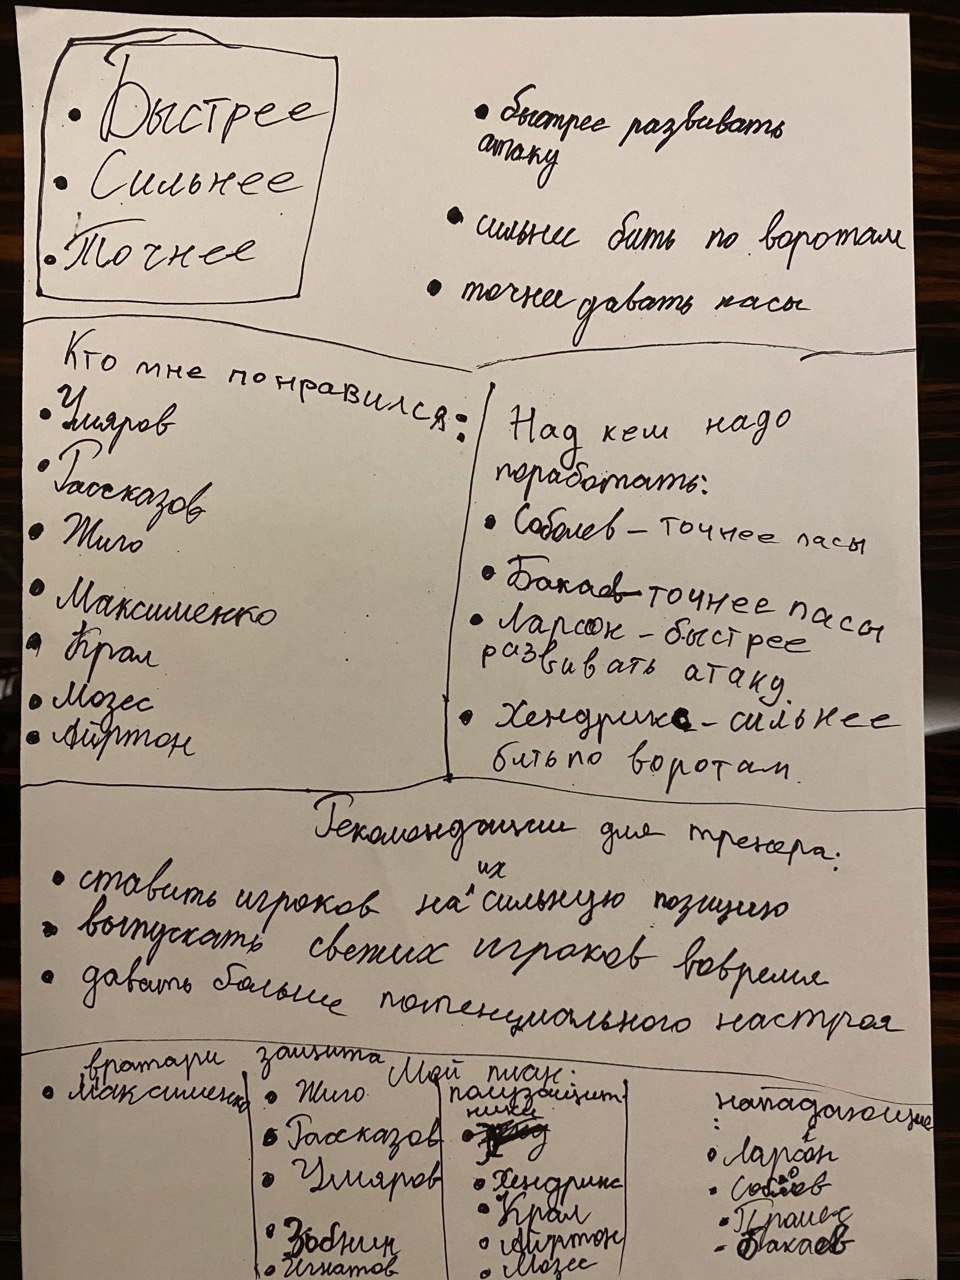 • Быстрее
• Сильнее
• Точнее
• быстрее развивать
атаку
• сильнее бить по воротам
• точнее давать пасы
Кто мне понравился:
• Умяров
• Рассказов
• Жиго
• Максименко
• Крал
• Мозес
• Айртон
Над кем надо
поработать:
• Соболев – точнее пасы
• Бакаев – точнее пасы
• Ларсон – быстрее
развивать атаку.
• Хендрикс – сильнее
бить по воротам.
Рекомендации для тренера:
• ставить игроков на их сильную позицию
• выпускать свежих игроков вовремя
• давать больше потенциального настроя
Мой план:
вратари
• Максименко
защита
• Жиго
• Рассказов
• Умяров
• Зобнин
• Игнатов
полузащит-
ники
• Хендрикс
• Крал
• Айртон
• Мозес
нападающие
:
• Ларсон
• Соболев
• Промес
• Бакаев